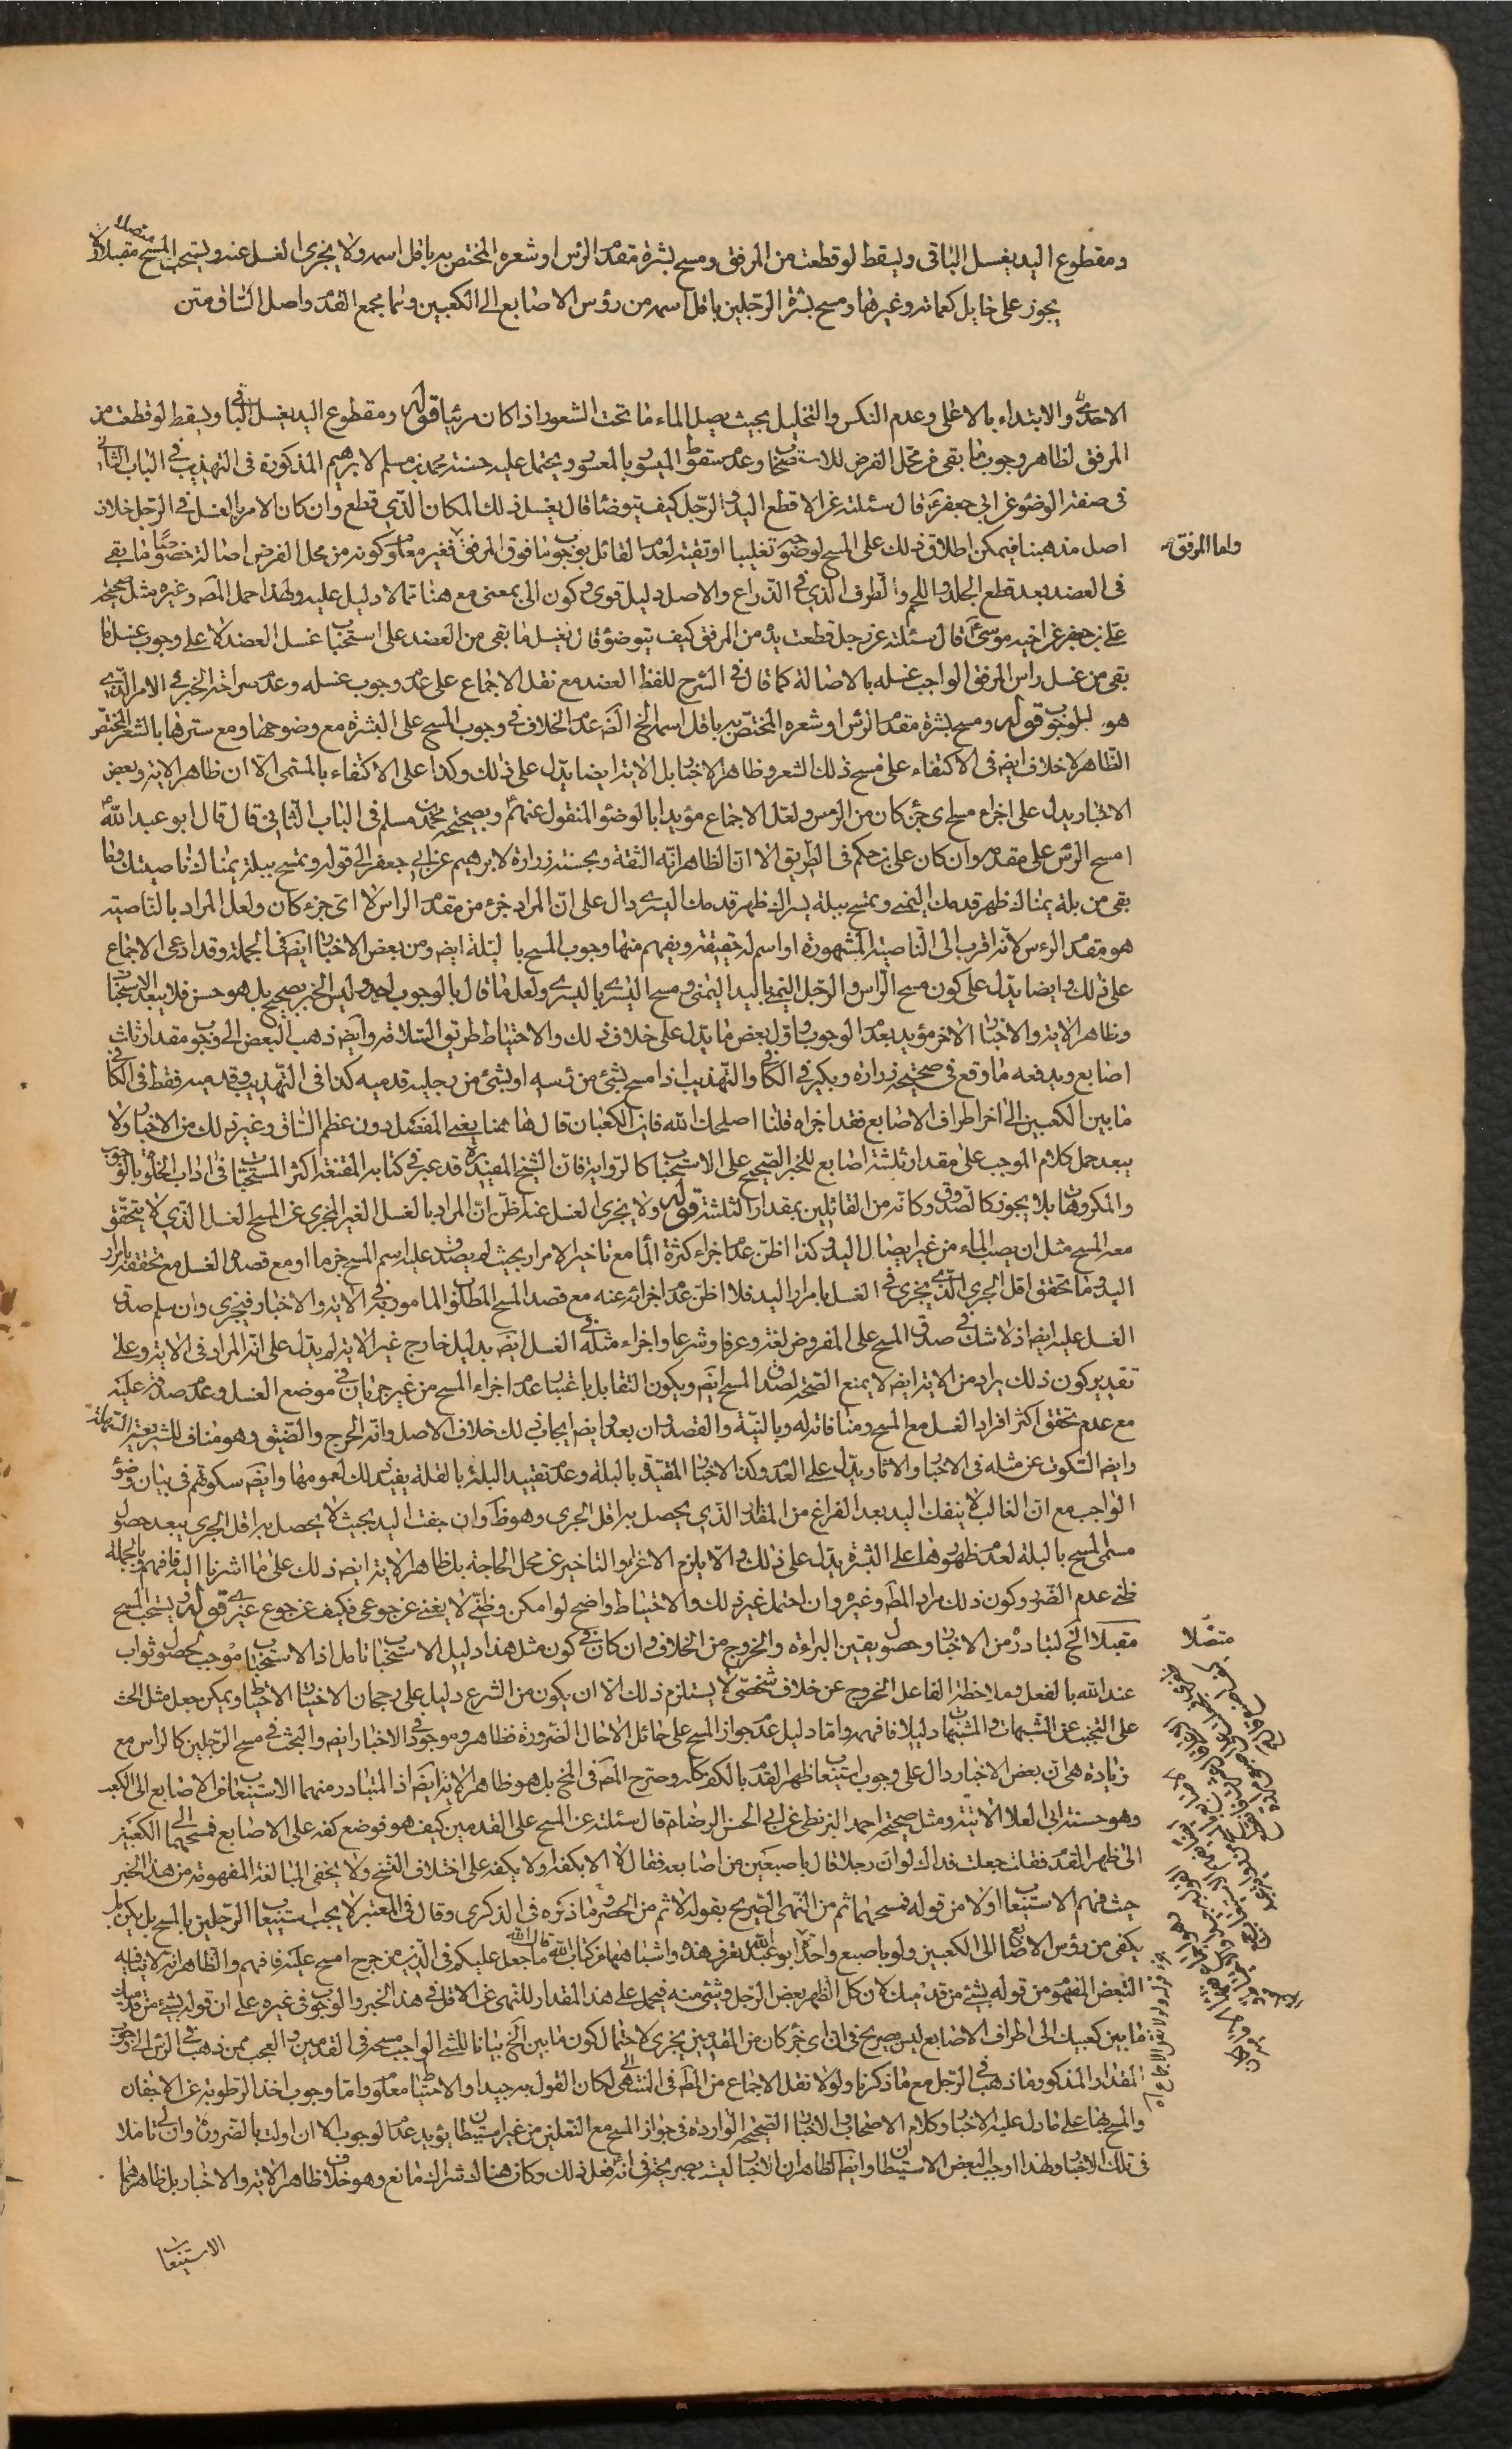 ومقطوع اليد يغسل الباقى ويسقط لو قطعت من المرفق ومسح بشرة مقدم الرئس او شعره المختص به باقل اسمه ولا يجزى الغسل عنه ويستحب المسح مقبلا ولا
يجوز على حايل كعمامة وغيرها ومسح بشرة الرجلين باقل اسمه من رؤس الاصابع الى الكعبين وهما مجمع القدم واصل الساق متن
والابتداء بالاعلى وعدم النكس والتخليل بحيث يصل الماء ما تحت الشعور اذا كان مرئيا قوله ومقطوع اليد يغسل الباقى ويسقط لو قطعت من
المرفق لظاهر وجوب ما بقى من محل الفرض للاستصحاب وعدم سقوط الميسور بالمعسور ويحتمل عليه حسنة محمد بن مسلم لابرهيم المذكورة فى التهذيب فى الباب الثانى
فى صفة الوضوء عن ابى جعفر قال سئلته عن الاقطع اليد والرجل كيف يتوضأ قال يغسل ذلك المكان الذى قطع وان كان الامر بالغسل فى الرجل خلاف
اصل مذهبنا فيمكن اطلاق ذلك على المسح لوضوحه تغليبا او تقية لعدم القائل بوجوب ما فوق المرفق فغير معلوم كونه من محل الفرض اصالة خصوصا ما بقى
واما المرفق
فى العضد بعد قطع الجلد واللحم والطرف الذى فى الذراع والاصل دليل قوى وكون الى بمعنى مع هنا مما لا دليل عليه ولهذا حمل المصه وغيره مثل صحيحة
على بن جعفر عن اخيه موسى قال سئلته عن رجل قطعت يده من المرفق كيف يتوضؤ قال يغسل ما بقى من العضد على استحباب غسل العضد لا على وجوب غسل ما
بقى من غسل راس المرفق الواجب غسله بالاصالة كما قال فى الشرح للفظ العضد مع نقل الاجماع على عدم وجوب غسله وعدم صراحة الخبر فى الامر الذى
هو للوجوب قوله ومسح بشرة مقدم الرئس او شعره المختص به باقل اسمه الخ الظ عدم الخلاف فى وجوب المسح على البشرة مع وضوحها ومع سترها بالشعر المختص
الظاهر لا خلاف ايضه فى الاكتفاء على مسح ذلك الشعر وظاهر الاخبار بل الاية ايضا يدل على ذلك وكذا على الاكتفاء بالمسمى الا ان ظاهر الاية وبعض
الاخبار يدل على اجزاء مسح اى جزء كان من الرئس ولعل الاجماع مؤيدا بالوضوء المنقول عنهم وبصحيحة محمد بن مسلم فى الباب الثانى قال قال ابو عبد الله
امسح الرئس على مقدمه وان كان على بن حكم فى الطريق الا ان الظاهر انه الثقة وبحسنة زرارة لابرهيم عن ابى جعفر الى قوله وتمسح ببلة يمناك ناصيتك وما
بقى من بلة يمناك ظهر قدمك اليمنى وتمسح ببلة يسراك ظهر قدمك اليسرى دال على ان المراد جزء من مقدم الراس لا اى جزء كان ولعل المراد بالناصية
هو مقدم الرءس لانه اقرب الى الناصية المشهورة او اسم له حقيقة ويفهم منها وجوب المسح با لبلة ايضه ومن بعض الاخبار ايضه فى الجملة وقد ادعى الاجماع
على ذلك وايضا يدل على كون مسح الراس والرجل اليمنى باليد اليمنى ومسح اليسرى باليسرى ولعل ما قال بالوجوب احد وليس الخبر بصحيح بل هو حسن فلا يبعد الاستحباب
وظاهر الاية والاخبار الاخر مؤيد بعدم الوجوب واول بعض ما يدل على خلاف ذلك والاحتياط طريق السلامة وايضه ذهب البعض الى وجوب مقدار ثلث
اصابع ويدفعه ما وقع فى صحيحة زرارة وبكير فى الكافى والتهذيب اذا مسح بشئ من رئسه او بشئ من رجليه قدميه كذا فى التهذيب وقدميه فقط فى الكافى
ما بين الكعبين الى اخر اطراف الاصابع فقد اجزاه قلنا اصلحك الله فاين الكعبان قال هاهنا يعنى المفصل دون عظم الساق وغير ذلك من الاخبار ولا
يبعد حمل كلام الموجب على مقدار ثلثة اصابع للخبر الصحيح على الاستحباب كالرواية فان الشيخ المفيد ره قد عبر فى كتابه المقنعة اكثر المستحبات فى اداب الخلوة بالوجوب
والمكروهات بلا يجوز كالصدوق وكانه من القائلين بمقدار الثلثة قوله ولا يجزى الغسل عنه ظن ان المراد بالغسل الغير المجزى عن المسح الغسل الذى لا يتحقق
معه المسح مثل ان يصب الماء من غير ايصال اليد وكذا اظن عدم اجزاء كثرة الماء مع تاخير الامرار بحيث لم يصدق عليه اسم المسح جزما او مع قصد الغسل مع تحققه بامرار
اليد وما تحقق اقل الجرى الذى يجزى فى الغسل بامرار اليد فلا اظن عدم اجزائه عنه مع قصد المسح المطلوب المامور به فى الاية والاخبار فيجزى وان سلم صدق
الغسل عليه ايضه اذ لا شك فى صدق المسح على المفروض لغة وعرفا وشرعا واجزاء مثله فى الغسل ايضه بدليل خارج غير الاية لم يدل على انه المراد فى الاية وعلى
تقدير كون ذلك يراد من الاية ايضه لا يمنع الصحة لصدق المسح ايضه ويكون التقابل باعتبار عدم اجزاء المسح من غير جريان فى موضع الغسل وعدم صدقه عليه
مع عدم تحقق اكثر افراد الغسل مع المسح ومنافاته له وبالنية والقصد وان بعد وايضه ايجاب ذلك خلاف الاصل وانه الحرج والضيق وهو مناف للشريعة السهلة
وايضه السكوت عن مثله فى الاخبار والاثار يدل على العدم وكذا الاخبار المقيدة بالبلة وعدم تقييد البلة بالقلة يفيد ذلك لعمومها وايضه سكوتهم فى بيان وضوء
الواجب مع ان الغالب لا ينفك اليد بعد الفراغ من المقدار الذى يحصل به اقل الجرى وهو ظ وان جفت اليد بحيث لا يحصل به اقل الجرى يبعد حصول
مسمى المسح بالبلة لعدم ظهورها على البشرة يدل على ذلك والا يلزم الاغراء والتاخير عن محل الحاجة بل ظاهر الاية ايضه ذلك على ما اشرنا اليه فافهم وبالجملة
ظنى عدم الضرر وكون ذلك مراد المصه وغيره وان احتمل غير ذلك والاحتياط واضح لو امكن وظنى لا يغنى عن جوعى فكيف عن جوع غيرى قوله ويستحب المسح
مقبلا الخ لتبادره من الاخبار وحصول يقين البراءة والخروج من الخلاف وان كان فى كون مثل هذا دليل الاستحباب تامل اذ الاستحباب موجب لحصول ثواب
متصلا
عند الله بالفعل وملاحظة الفاعل الخروج عن خلاف شخص لا يستلزم ذلك الا ان يكون من الشرع دليل على رجحان الاحتياط ويمكن جعل مثل الحث
على التجنب عن الشبهات والمشتبهات دليلا فافهم واما دليل عدم جواز المسح على حائل الا حال الضرورة فظاهر وموجود فى الاخبار ايضه والبحث فى مسح الرجلين كالراس مع
زيادة هى ان بعض الاخبار دال على وجوب استيعاب ظهر القدم بالكف وصرح المصه فى بل هو ظاهر الاية ايضه اذ المتبادر منهما الاستيعاب من الاصابع الى الكعب
وهو حسنة ابى العلا الاتية ومثل صحيحة احمد البزنطى عن ابى الحسن الرضا قال سئلته عن المسح على القدمين كيف هو فوضع كفه على الاصابع فمسحها الى الكعبين
الى ظهر القدم فقلت جعلت فداك لو ان رجلا قال باصبعين من اصابعه فقال لا الا بكفه او لا بكفه على اختلاف النسخ ولا يخفى المبالغة المفهومة من هذا الخبر
حيث فهم الاستيعاب اولا من قوله فمسحها ثم من النهى الصريح بقوله لا ثم من الحصر وما ذكره فى الذكرى وقال فى المعتبر لا يجب استيعاب الرجلين بالمسح بل يكفى
يكفى من رؤس الاصابع الى الكعبين ولو باصبع واحدة ابو عبد الله يعرف هذا واشباهها من كتاب الله قال الله ما جعل عليكم فى الدين من حرج امسح عليه فافهم والظاهر انه لا
التبعض المفهوم من قوله بشئ من قدميك لان كل الظهر بعض الرجل وشئ منه فيحمل على هذا المقدار للنهى عن الاقل فى هذا الخبر والوجوب فى غيره على ان قوله بشئ من قدميك
ما بين كعبيك الى اطراف الاصابع ليس صريح فى ان اى جزء كان من القدمين يجزى لاحتمال كون ما بين الخ بيانا للشئ الواجب مسحه فى القدمين والعجب ممن ذهب فى الرئس الى وجوب
المقدار المذكور وما ذهب فى الرجل مع ما ذكرنا ولولا نقل الاجماع من المصه فى المنتهى لكان القول به جيدا والاحتياط معلوم واما وجوب اخذ الرطوبة عن الاجفان
والمسح بها على ما دل عليه الاخبار وكلام الاصحاب والاخبار الصحيحة الواردة فى جواز المسح مع النعلين من غير استبطان يؤيد عدم الوجوب الا ان اولت بالضرورة وان لى تاملا
فى تلك الاخبار ولهذا اوجب البعض الاستبطان وايضا الظاهر ان الاخبار ليست بصريحة فى انه فعل ذلك وكان هناك شراك مانع وهو خلاف ظاهر الاية والاخبار بل ظاهرهما
الاستيعاب